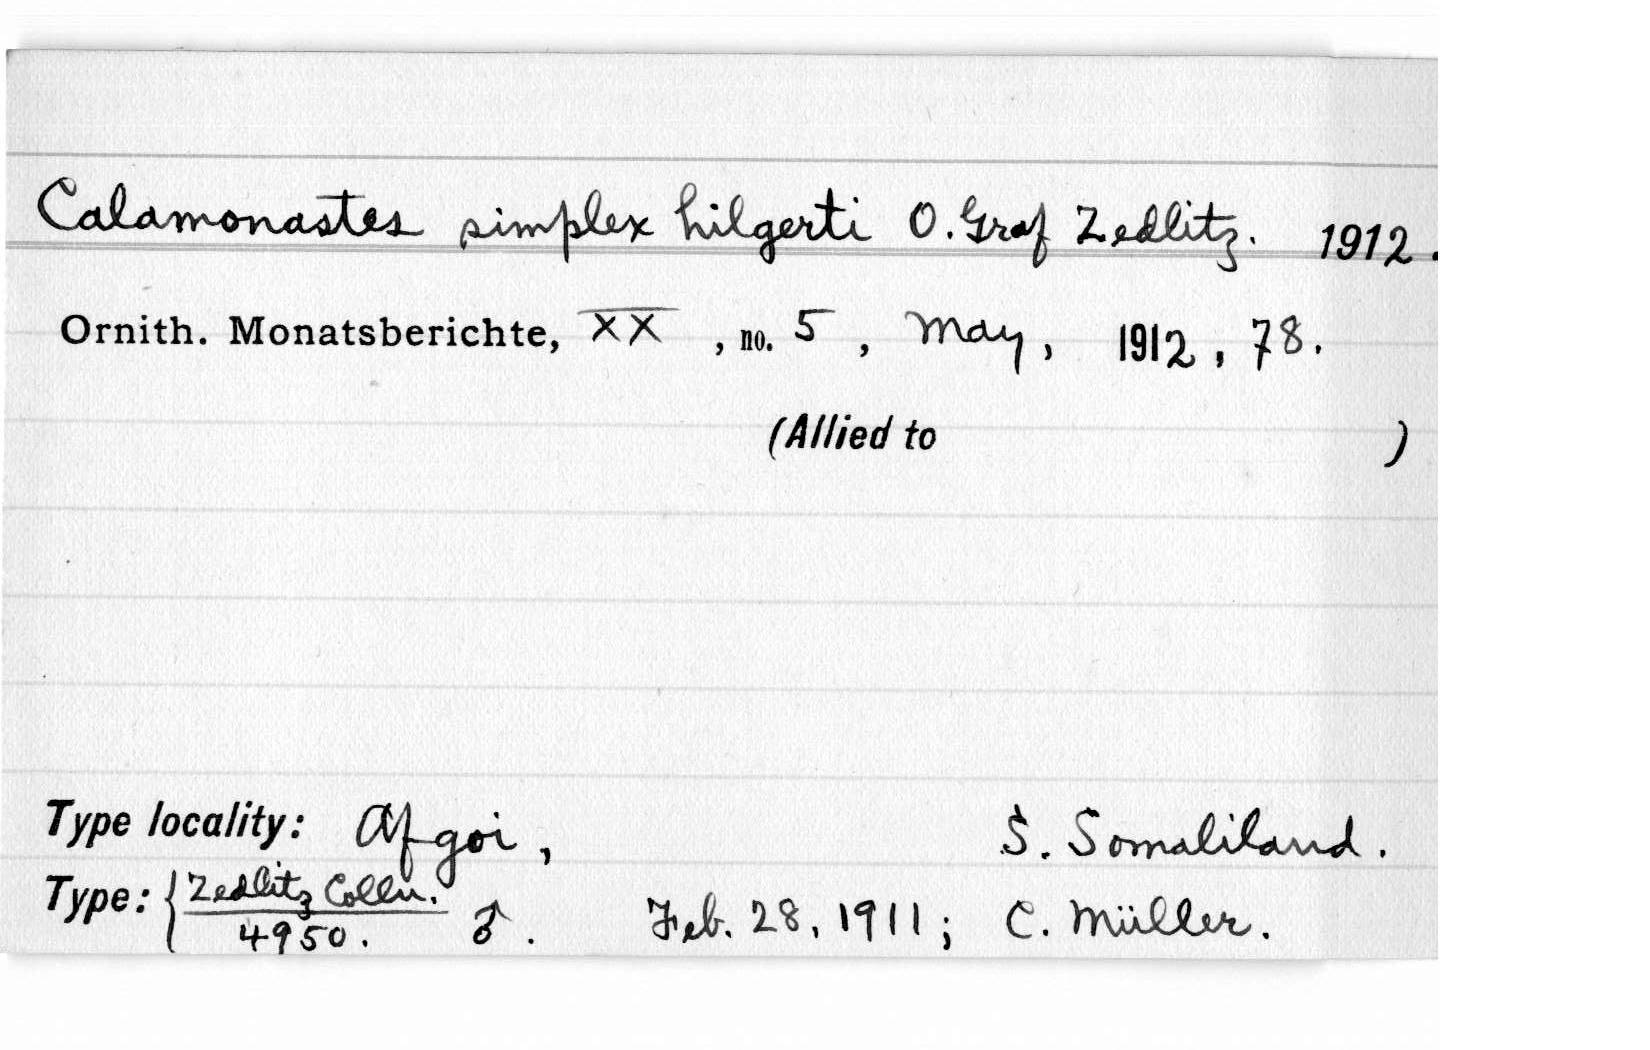 Calamonastes simplex hilgerti O. Graf Zedlitz. 1912.
Ornith. Monatsberichte, XX , no. 5 , May, 1912, 78.
(Allied to )
Type locality: Afgoi, S. Somaliland.
Type: { Zedlitz Colln. / 4950. ♂. Feb. 28, 1911; C. Müller.